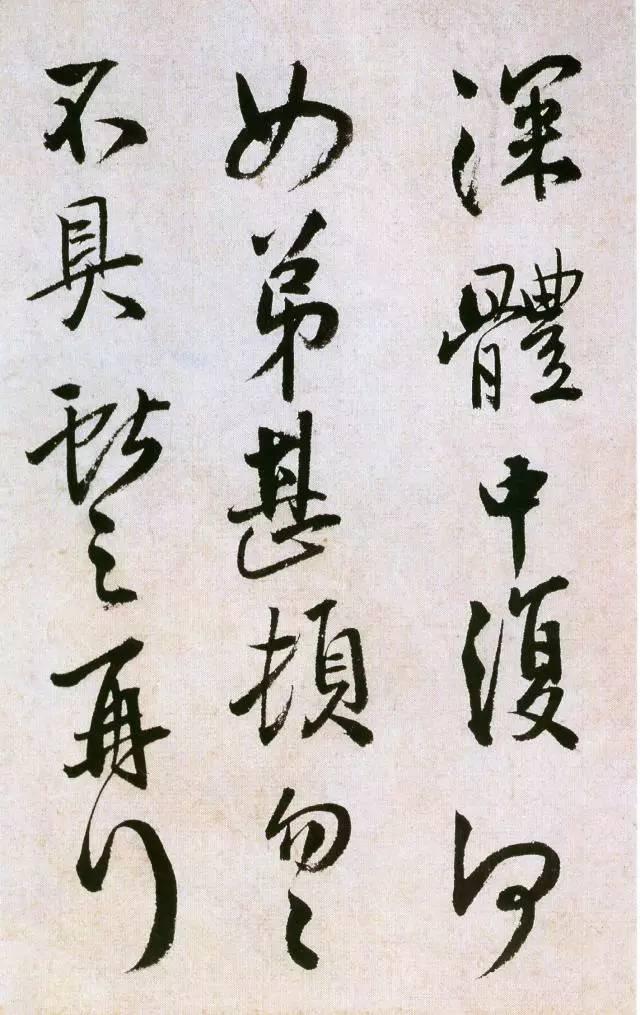 深體中復何
如弟甚頓匆〻
不具獻之再行